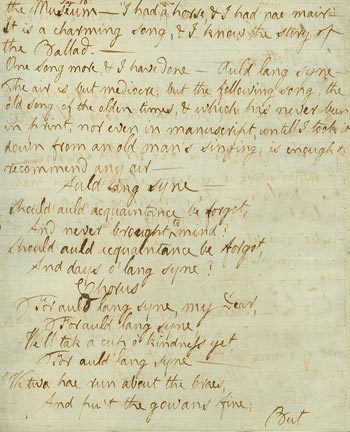 the Museum — I had a horse, & I had nae mair —
It is a charming song, & I know the story of
the Ballad. —
One song more, & I have done — Auld lang syne —
The air is but mediocre; but the following song, the
old song of the olden times, & which has never been
in print, nor even in manuscript, untill I took it
down from an old man's singing, is enough to
recommend any air —
Auld lang syne —
Should auld acquaintance be forgot,
And never brought to mind?
Should auld acquaintance be forgot,
And days o' lang syne?
Chorus
For auld lang syne, my Dear,
For auld lang syne,
We'll take a cup o' kindness yet
For auld lang syne —
We twa hae run about the braes,
And pu't the gowans fine;
But